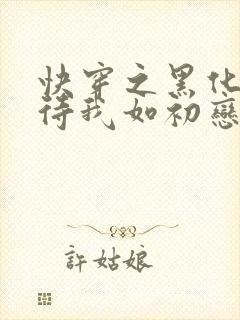 快穿之黑化
待我如初戀
許姑娘